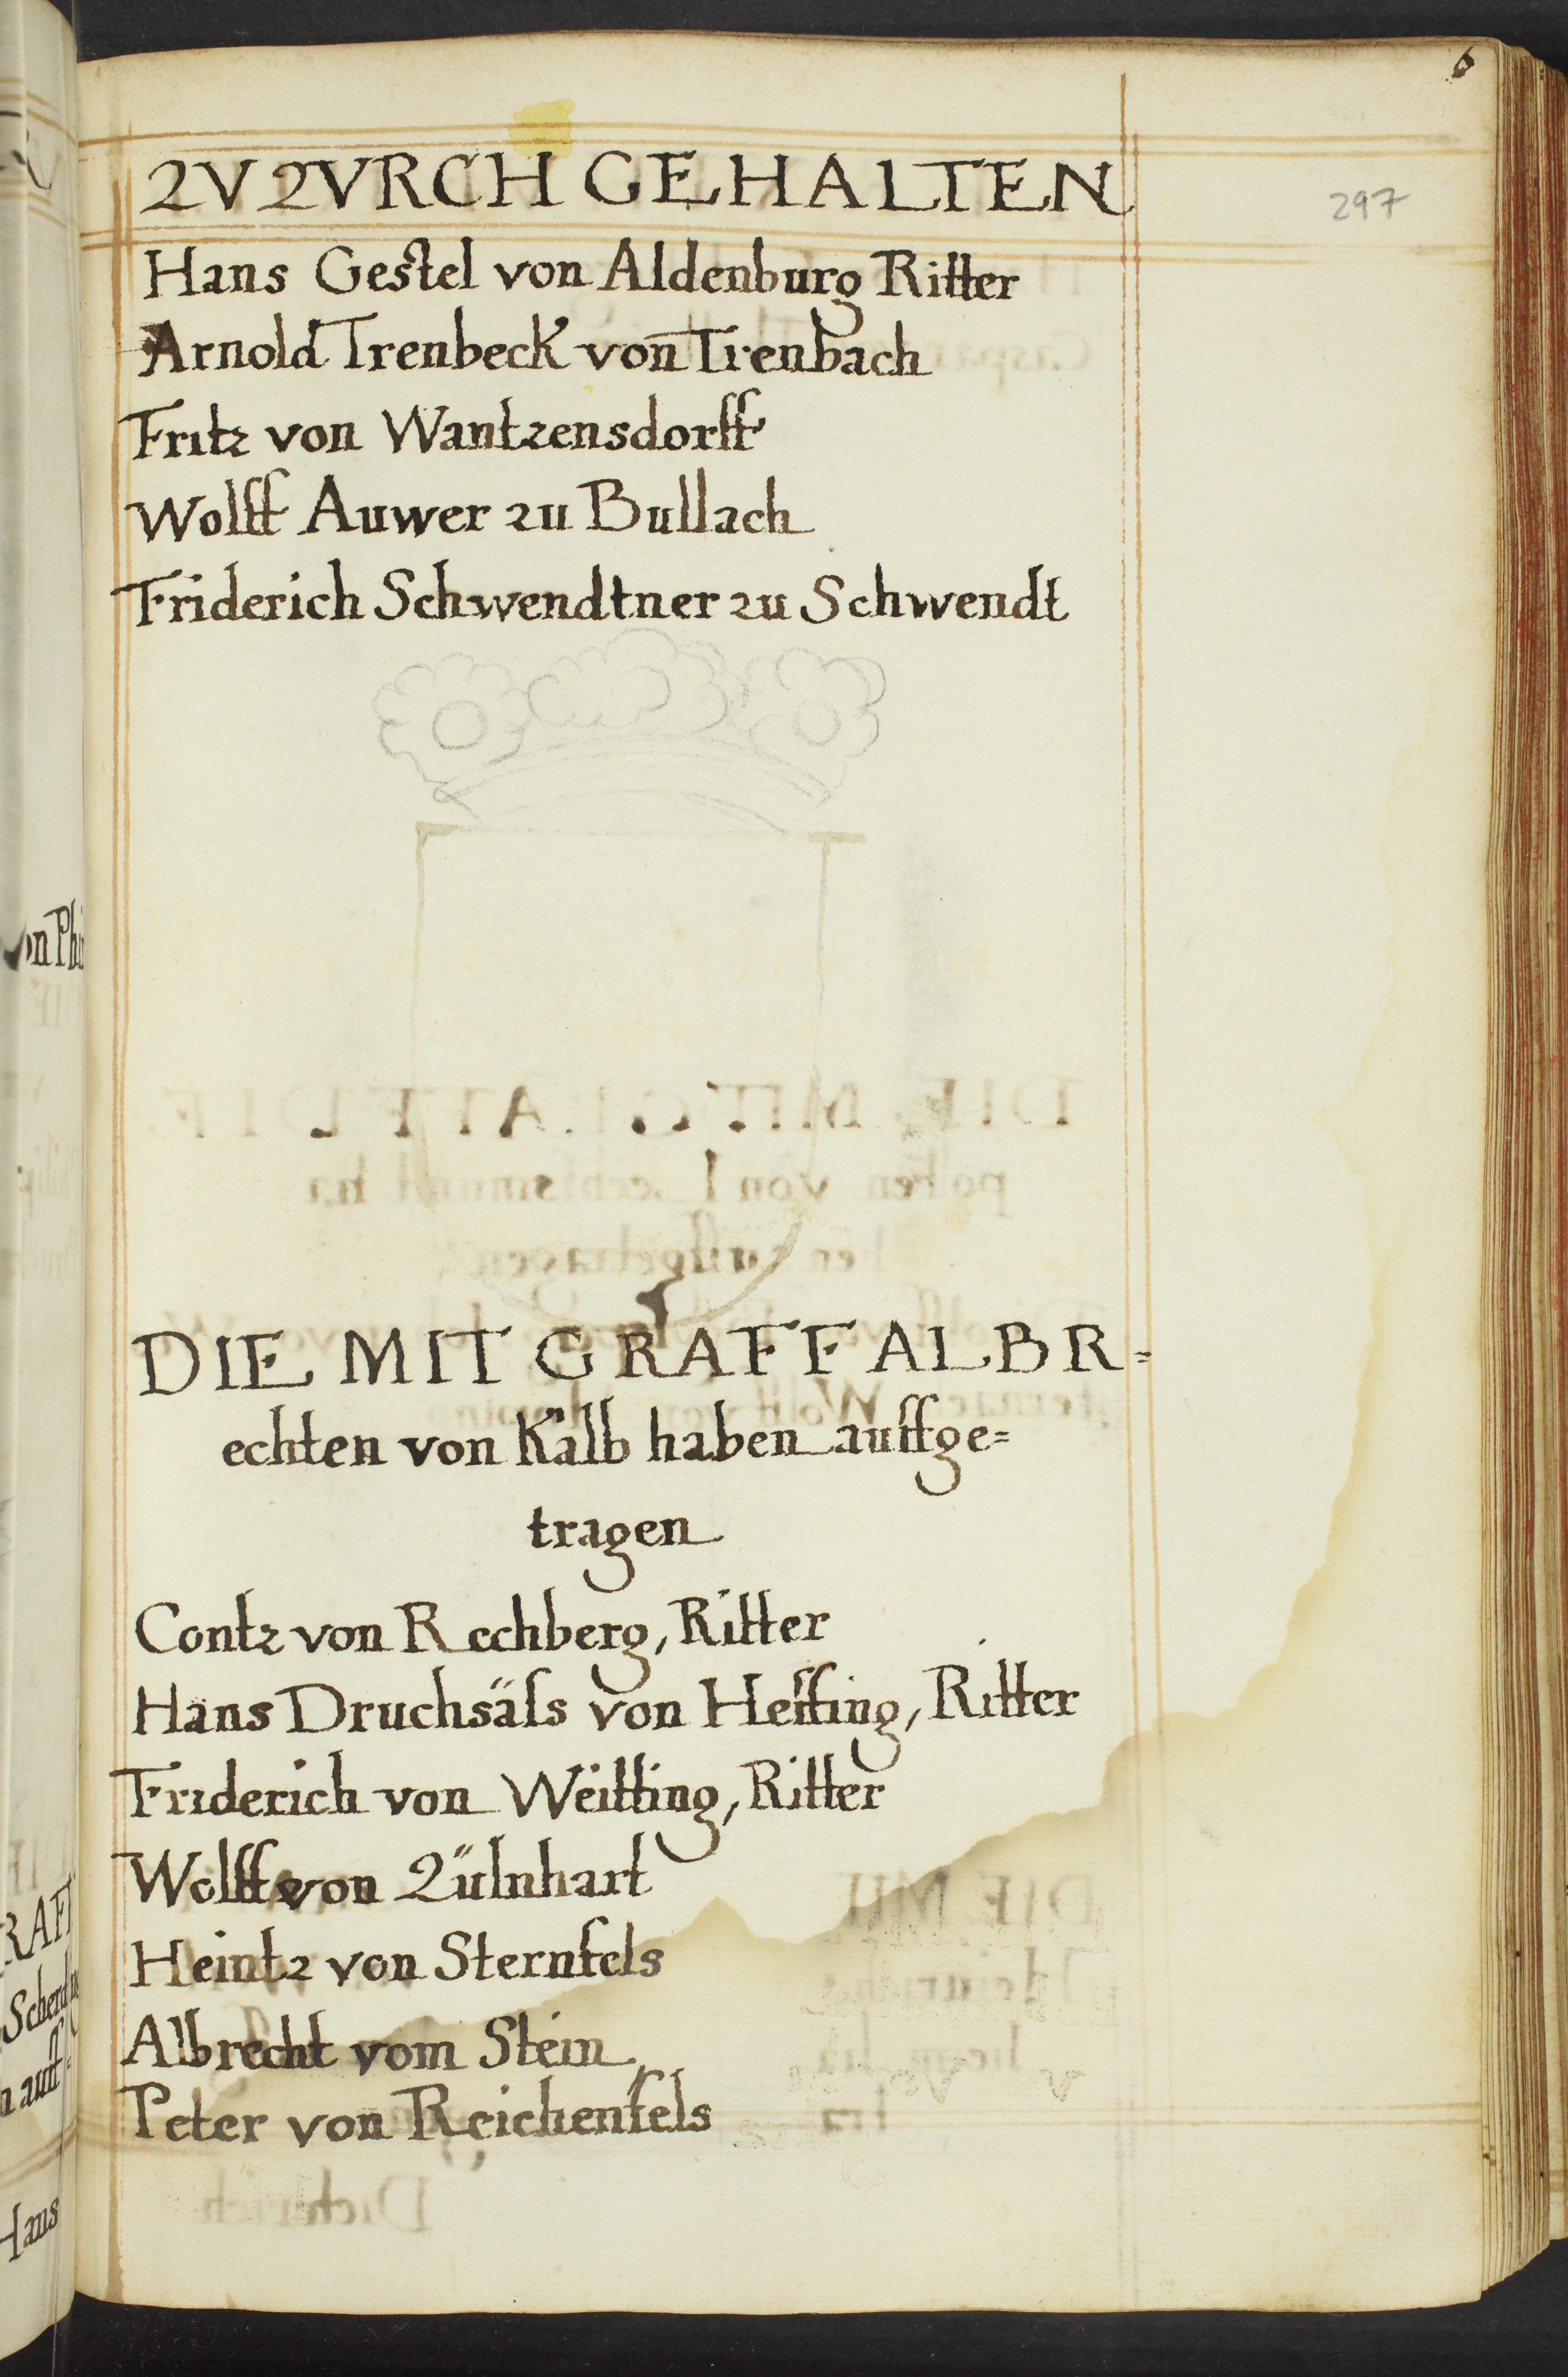 6
ZV ZVRCH GEHALTEN
297
Hans Gestel von Aldenburg Ritter
Arnold Trenbeck von Trenbach
Fritz von Wantzensdorff
Wolff Auwer zu Bullach
Friderich Schwendtner zu Schwendt
DIE MIT GRAFF ALBR=
echten von Kalb haben auffge=
tragen
Contz von Rechberg, Ritter
Hans Druchsäſs von Heffing, Ritter
Friderich von Weitting, Ritter
Wolff von Zülnhart
Heintz von Sternfels
Albrecht vom Stein
Peter von Reichenfels